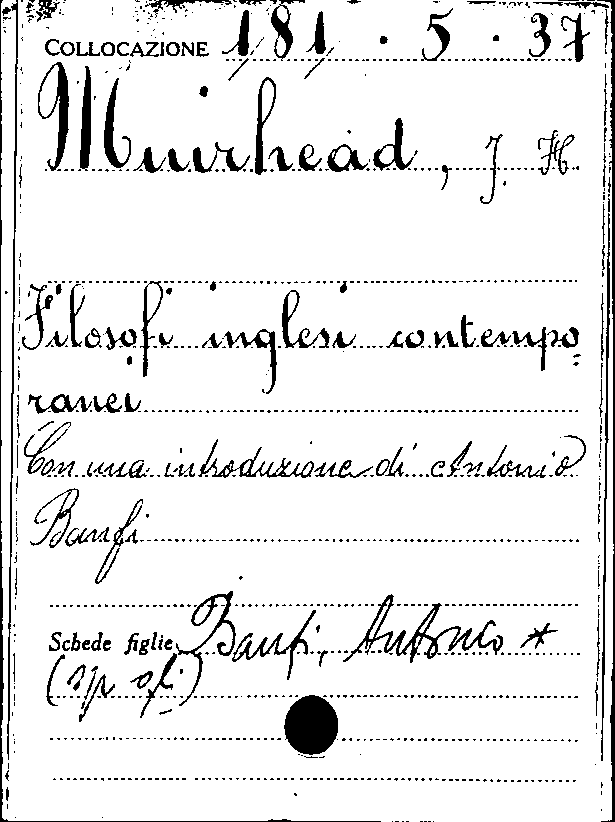 COLLOCAZIONE 181 . 5 . 37
Muirhead, J. H.
Filosofi inglesi contempo=
ranei
Con una introduzione di Antonio
Banfi
Schede figlie Banfi, Antonio *